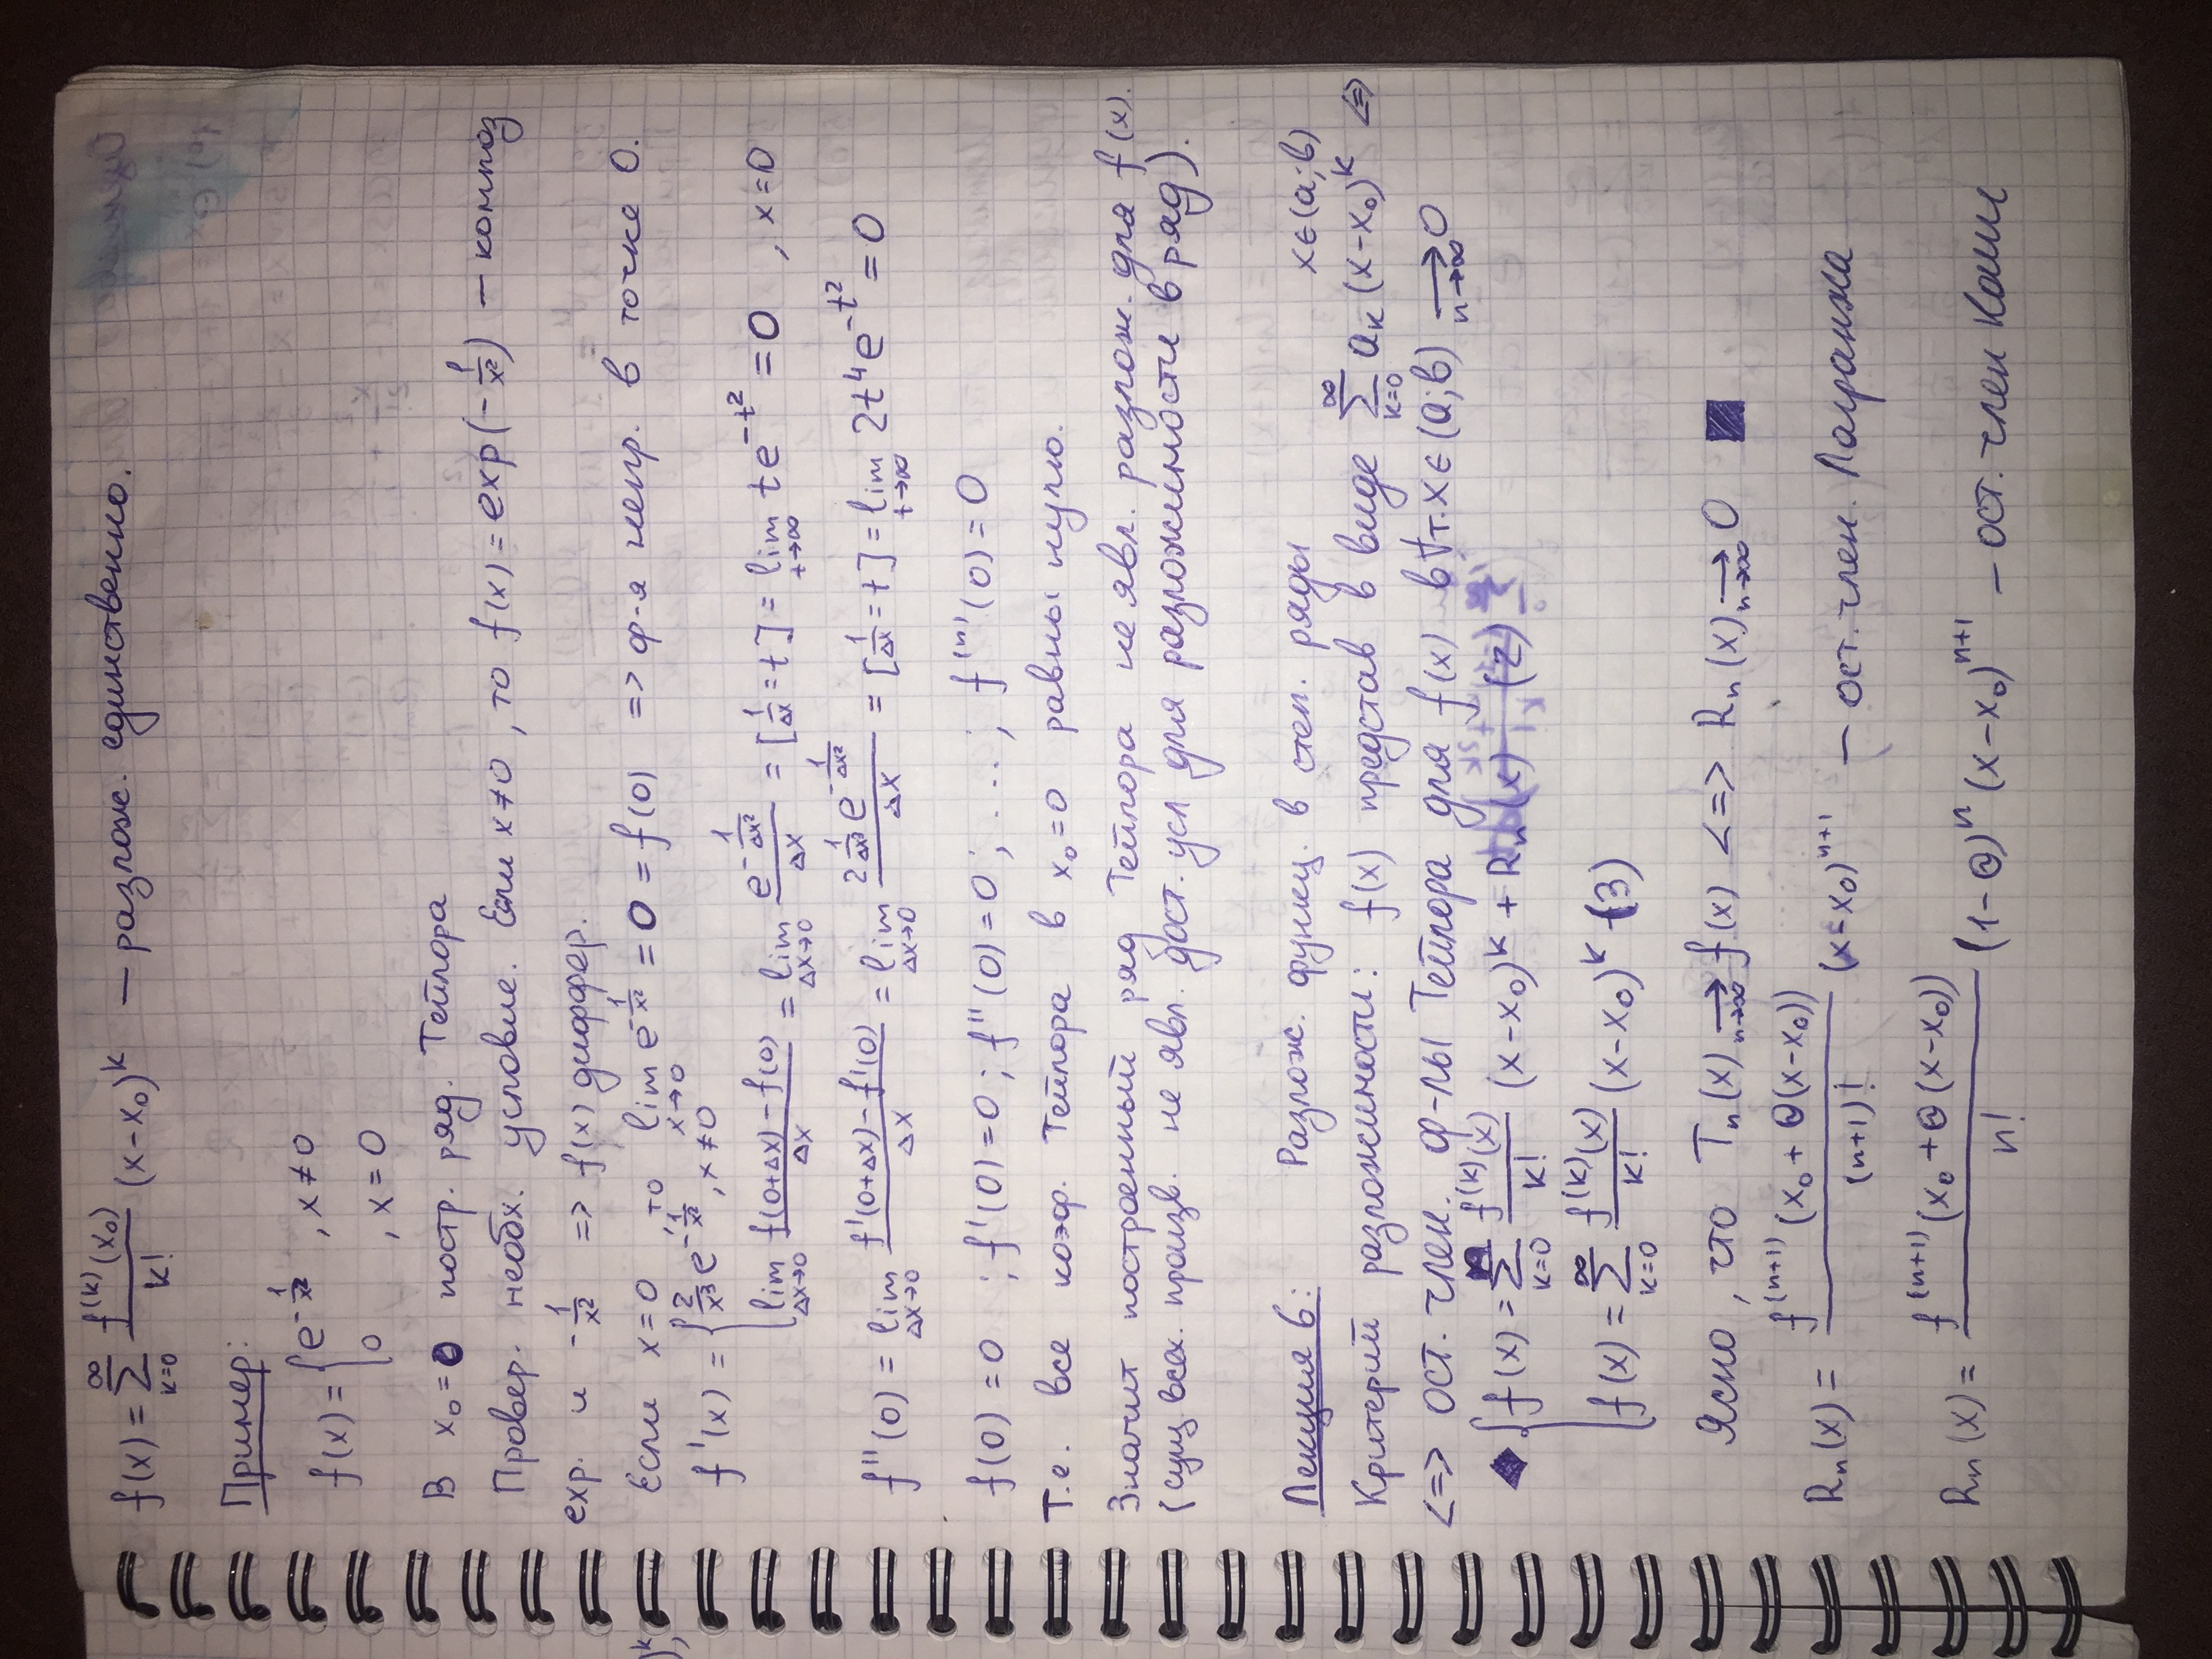 f(x) = ∑_{k=0}^{∞} \frac{f^{(k)}(x₀)}{k!} (x-x₀)^k — разлож. единственно.
Пример:
f(x) = { e^{-\frac{1}{x²}} , x ≠ 0
0 , x = 0
В x₀=0 постр. ряд. Тейлора
Провер. необх. условие. Если x≠0, то f(x) = exp(-\frac{1}{x²}) — композ
exp. и -\frac{1}{x²} => f(x) диффер.
Если x=0, то lim_{x→0} e^{-\frac{1}{x²}} = 0 = f(0) => ф-я непр. в точке 0.
f'(x) = { \frac{2}{x³} e^{-\frac{1}{x²}}, x≠0
lim_{Δx→0} \frac{f(0+Δx)-f(0)}{Δx} = lim_{Δx→0} \frac{e^{-\frac{1}{Δx²}}}{Δx} = [\frac{1}{Δx}=t] = lim_{t→∞} te^{-t²} = 0 , x=0
f''(0) = lim_{Δx→0} \frac{f'(0+Δx)-f'(0)}{Δx} = lim_{Δx→0} \frac{2\frac{1}{Δx³}e^{-\frac{1}{Δx²}}}{Δx} = [\frac{1}{Δx}=t] = lim_{t→∞} 2t⁴e^{-t²} = 0
f(0) = 0 ; f'(0)=0; f''(0)=0; ...; f^{(n)}(0)=0
Т.е. все коэф. Тейлора в x₀=0 равны нулю.
Значит построенный ряд Тейлора не явл. разлож. для f(x).
(сущ всех. произв. не явл. дост. усл для разложимости в ряд).
Лекция 6: Разлож. функц. в степ. ряды
x∈(a;b)
Критерий разложимости: f(x) представ в виде ∑_{k=0}^{∞} a_k (x-x₀)^k <=>
<=> ост. член. ф-лы Тейлора для f(x) в ∀т. x∈(a;b) →_{n→∞} 0
◆ { f(x) = ∑_{k=0}^{n} \frac{f^{(k)}(x)}{k!} (x-x₀)^k + R_n(x) (2)
f(x) = ∑_{k=0}^{∞} \frac{f^{(k)}(x)}{k!} (x-x₀)^k (3)
Ясно, что T_n(x) →_{n→∞} f(x) <=> R_n(x) →_{n→∞} 0 ■
R_n(x) = \frac{f^{(n+1)}(x₀+Θ(x-x₀))}{(n+1)!} (x-x₀)^{n+1} — ост. член. Лагранжа
R_n(x) = \frac{f^{(n+1)}(x₀+Θ(x-x₀))}{n!} (1-Θ)^n (x-x₀)^{n+1} — ост. член Коши